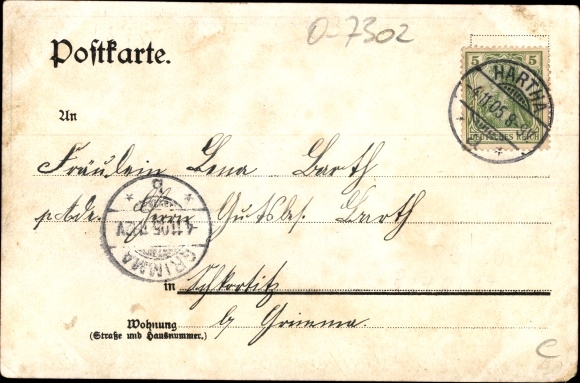 O-7302
Postkarte.
5 5
HARTHA
4.11.05 8-9V
DEUTSCHES REICH
An
Fräulein Lena Barth
p. Ade. Herrn Gutsbes. Barth
GRIMMA
4.11.05
b
in Schkortitz
Wohnung b/ Grimma.
(Straße und Hausnummer.)
C